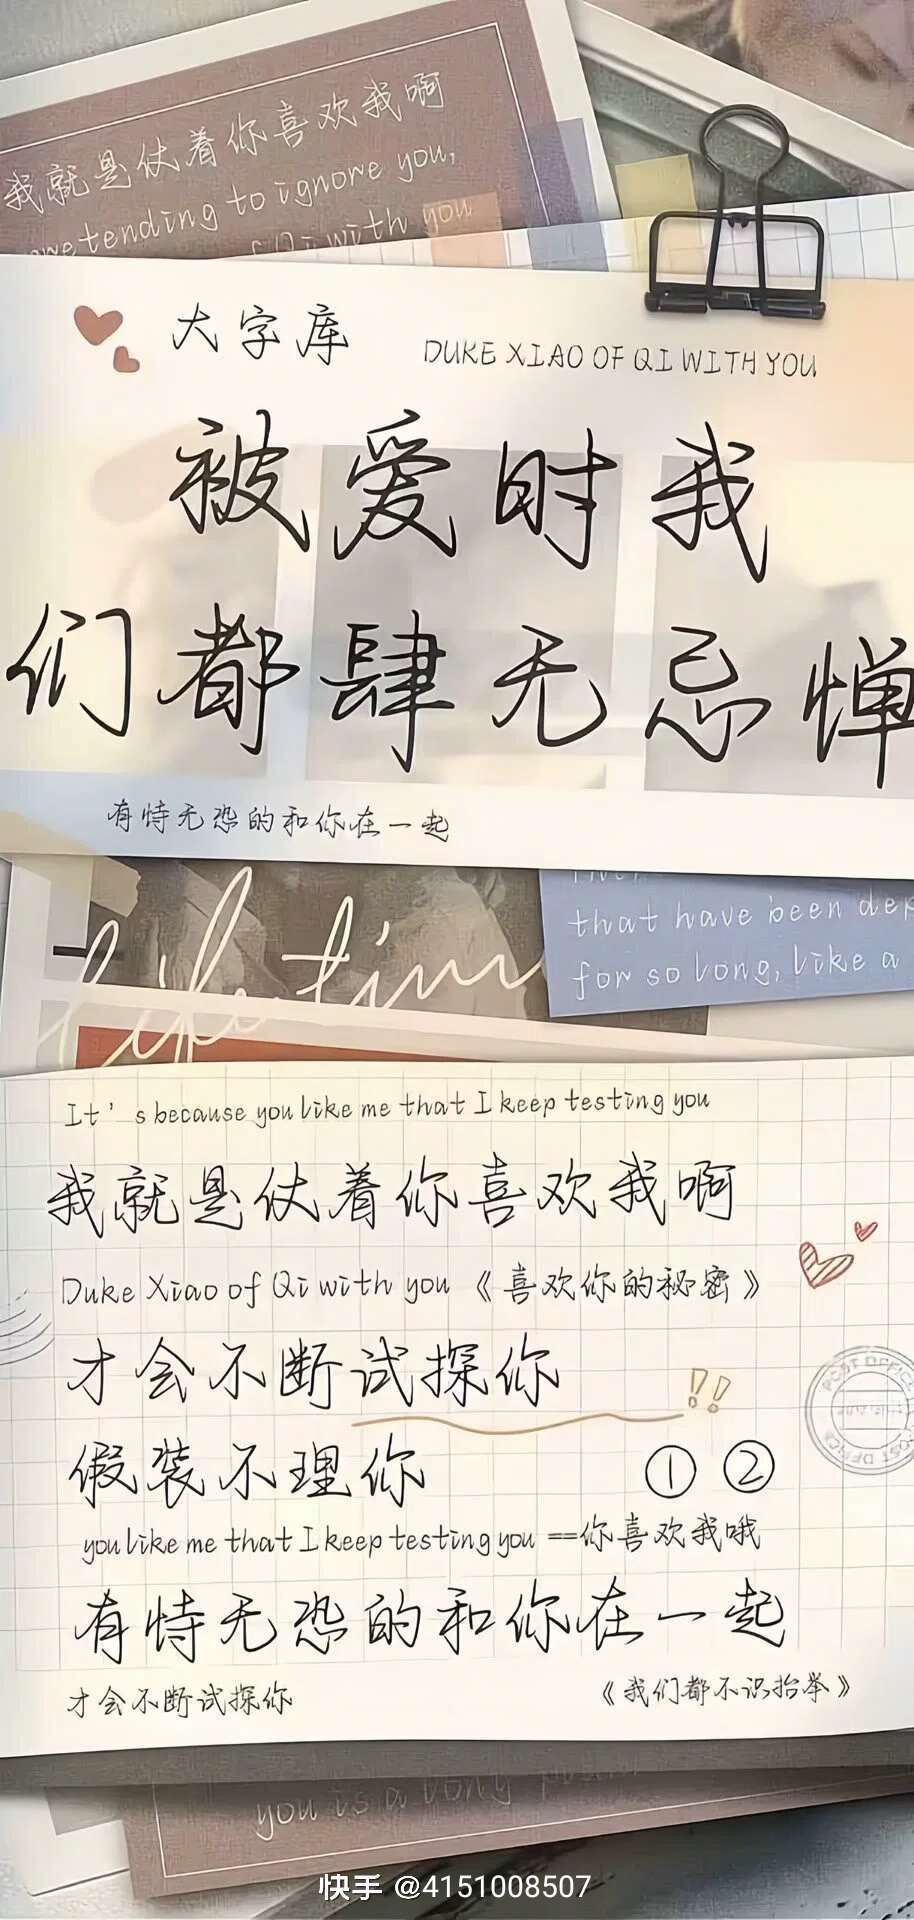 我就是仗着你喜欢我啊
pretending to ignore you,
of Qi with you
大字库
DUKE XIAO OF QI WITH YOU
被爱时我
们都肆无忌惮
有恃无恐的和你在一起
that have been dep
for so long, like a
It's because you like me that I keep testing you
我就是仗着你喜欢我啊
Duke Xiao of Qi with you《喜欢你的秘密》
才会不断试探你
!!
假装不理你 ① ②
you like me that I keep testing you ==你喜欢我哦
有恃无恐的和你在一起
才会不断试探你 《我们都不识抬举》
POST OFFICE
POST OFFICE
you is a long
快手 @4151008507